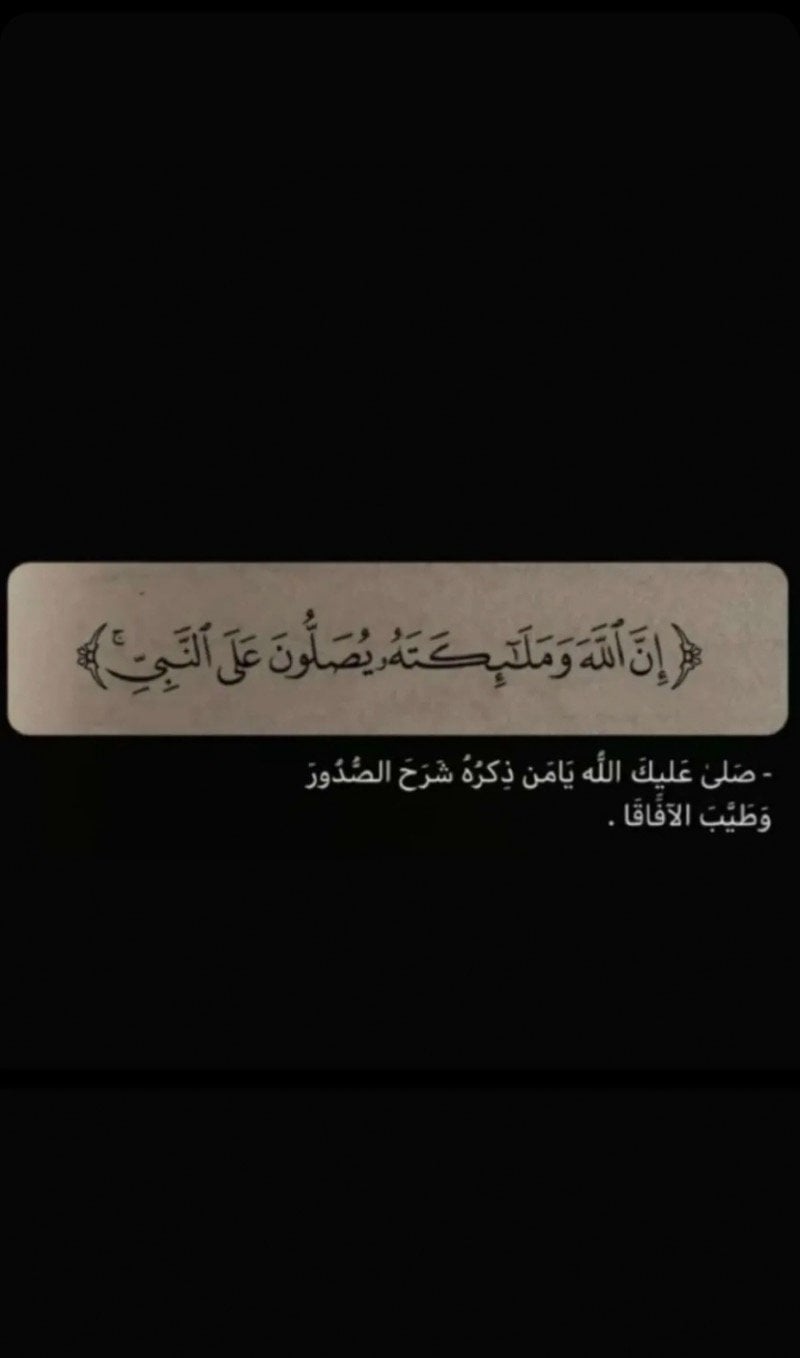 ﴿إِنَّ ٱللَّهَ وَمَلَـٰٓئِكَتَهُۥ يُصَلُّونَ عَلَى ٱلنَّبِىِّ ۚ﴾
- صَلىٰ عَليكَ اللَّه يَامَن ذِكرُهُ شَرَحَ الصُّدُورَ
وَطَيَّبَ الآفَاقَا .